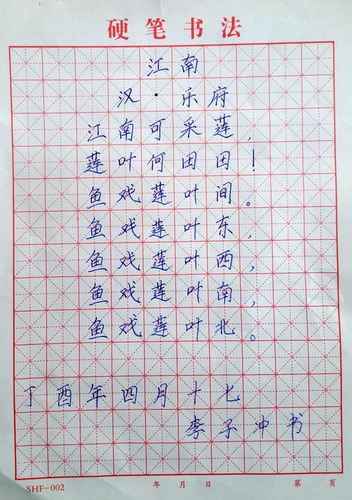 硬笔书法
江南
汉·乐府
江南可采莲，
莲叶何田田！
鱼戏莲叶间。
鱼戏莲叶东，
鱼戏莲叶西，
鱼戏莲叶南，
鱼戏莲叶北。
丁酉年四月十七
李子冲书
SHF-002 年 月 日 第 页